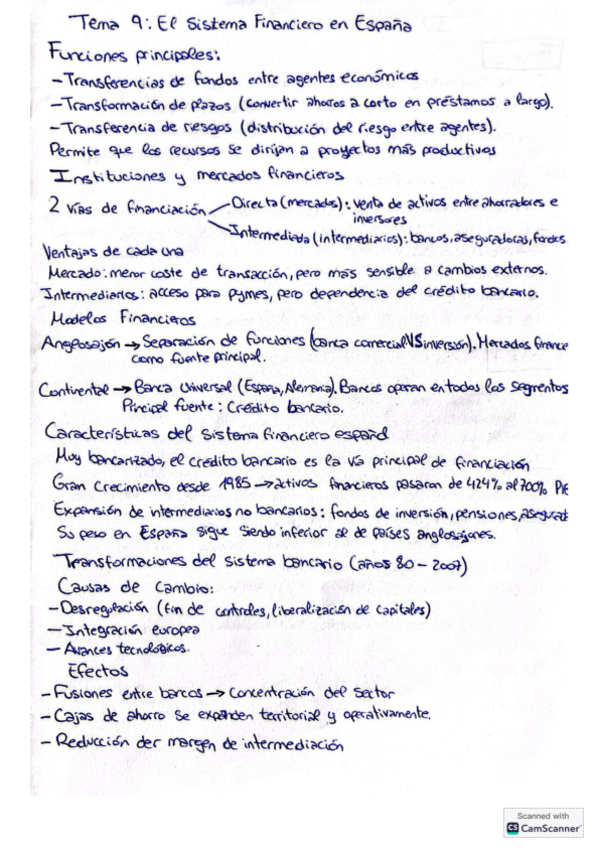 Tema 9: El Sistema Financiero en España
Funciones principales:
- Transferencias de fondos entre agentes económicos
- Transformación de plazos (convertir ahorros a corto en préstamos a largo).
- Transferencia de riesgos (distribución del riesgo entre agentes).
Permite que los recursos se dirijan a proyectos más productivos
Instituciones y mercados financieros
2 vías de financiación
Directa (mercados): venta de activos entre ahorradores e
inversores
Intermediada (intermediarios): bancos, aseguradoras, fondos
Ventajas de cada una
Mercado: menor coste de transacción, pero más sensible a cambios externos.
Intermediarios: acceso para pymes, pero dependencia del crédito bancario.
Modelos Financieros
Anglosajón → Separación de funciones (banca comercial VS inversión). Mercados finance
como fuente principal.
Continental → Banca Universal (España, Alemania). Bancos operan en todos los segmentos
Principal fuente: Crédito bancario.
Características del sistema financiero español
Muy bancarizado, el crédito bancario es la vía principal de financiación
Gran Crecimiento desde 1985 → activos financieros pasaron de 424% al 700% PIB
Expansión de intermediarios no bancarios: fondos de inversión, pensiones, asegurad
Su peso en España sigue siendo inferior al de países anglosajones.
Transformaciones del sistema bancario (años 80 - 2007)
Causas de Cambio:
- Desregulación (fin de controles, liberalización de capitales)
- Integración europea
- Avances tecnológicos.
Efectos
- Fusiones entre bancos → Concentración del sector
- Cajas de ahorro se expanden territorial y operativamente.
- Reducción der margen de intermediación
Scanned with
CS CamScanner